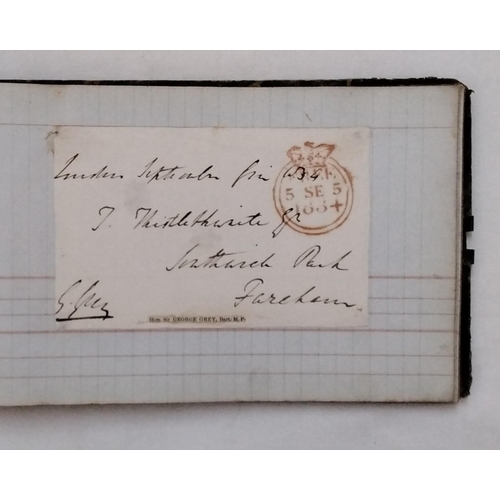 London September five 1834
FREE
5 SE 5
1834
T. Thistlethwaite Esqr
Southwick Park
Fareham
G. Grey
Hon. Sir GEORGE GREY, Bart. M.P.